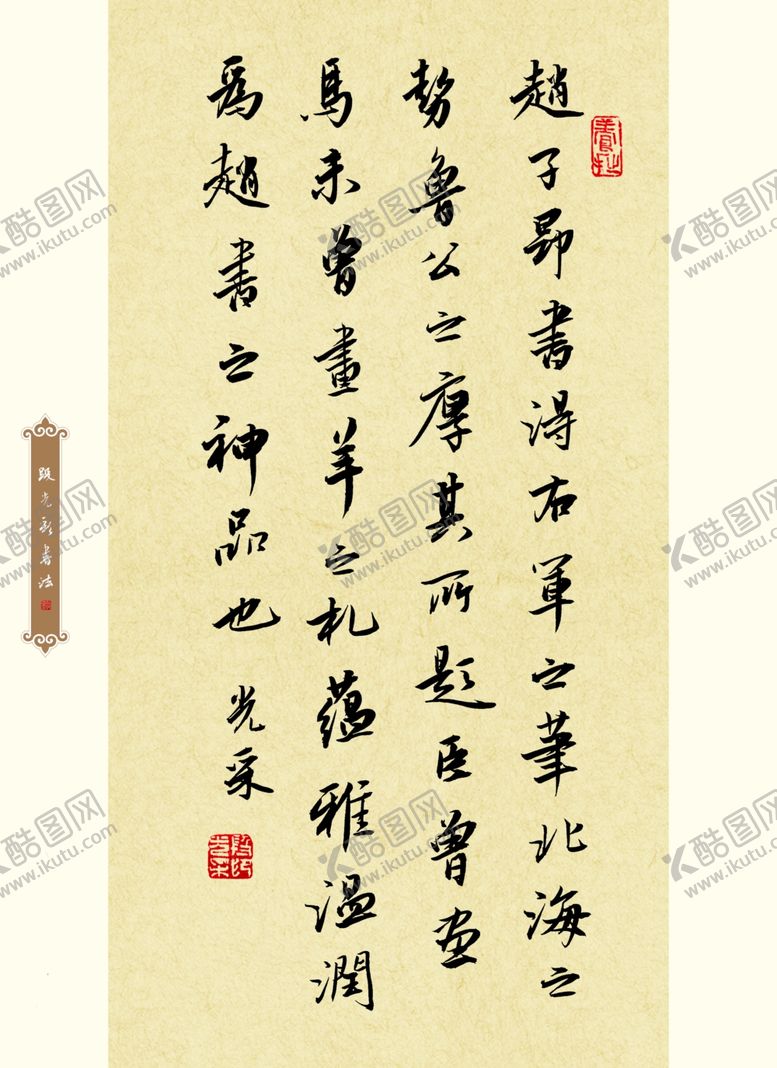 趙子昂書得右軍之筆北海之
勢魯公之厚其所題臣曾画
馬未曾畫羊之札蘊雅溫潤
爲趙書之神品也 光采
段光彩書法
酷图网
www.ikutu.com